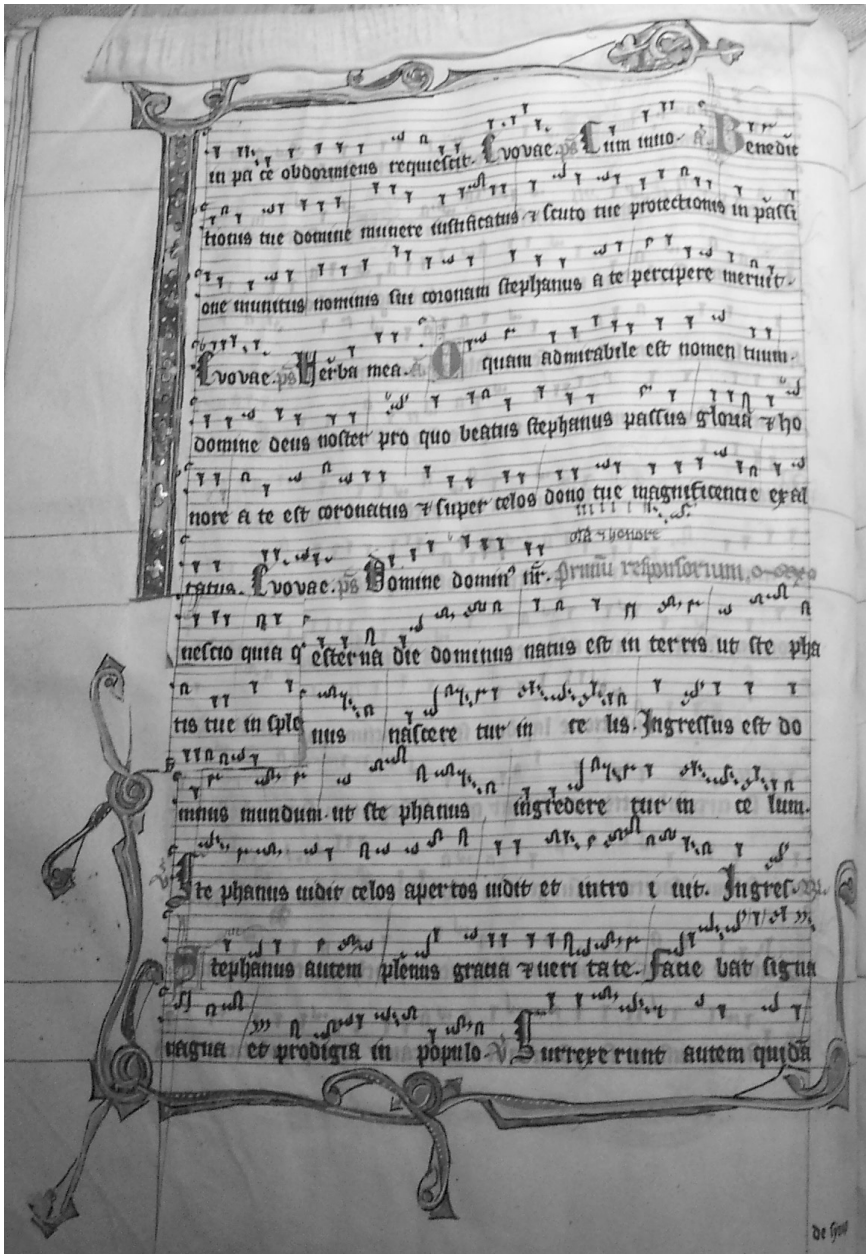 in pace obdormiens requiescit. Evovae. ps Cum inuo. a. Benedic
tionis tue domine munere iustificatus ⁊ scuto tue protectionis in passi
one munitus nominis sui coronam stephanus a te percipere meruit.
Evovae. ps Verba mea. a. O quam admirabile est nomen tuum.
domine deus noster pro quo beatus stephanus passus gloria ⁊ ho
nore a te est coronatus ⁊ super celos dono tue magnificencie exal
oria ⁊ honore
tatus. Evovae. ps Domine domin⁹ nr̄. Primū responsorium.
nescio quia q esterna die dominus natus est in terris ut ste pha
tis tue in sple nus nascere tur in ce lis. Ingressus est do
minus mundum. ut ste phanus ingredere tur in ce lum.
Ste phanus uidit celos apertos uidit et intro i uit. Ingres.
Stephanus autem plenus gracia ⁊ ueri tate. facie bat signa
magna et prodigia in populo. V̄ Surrexe runt autem quidā